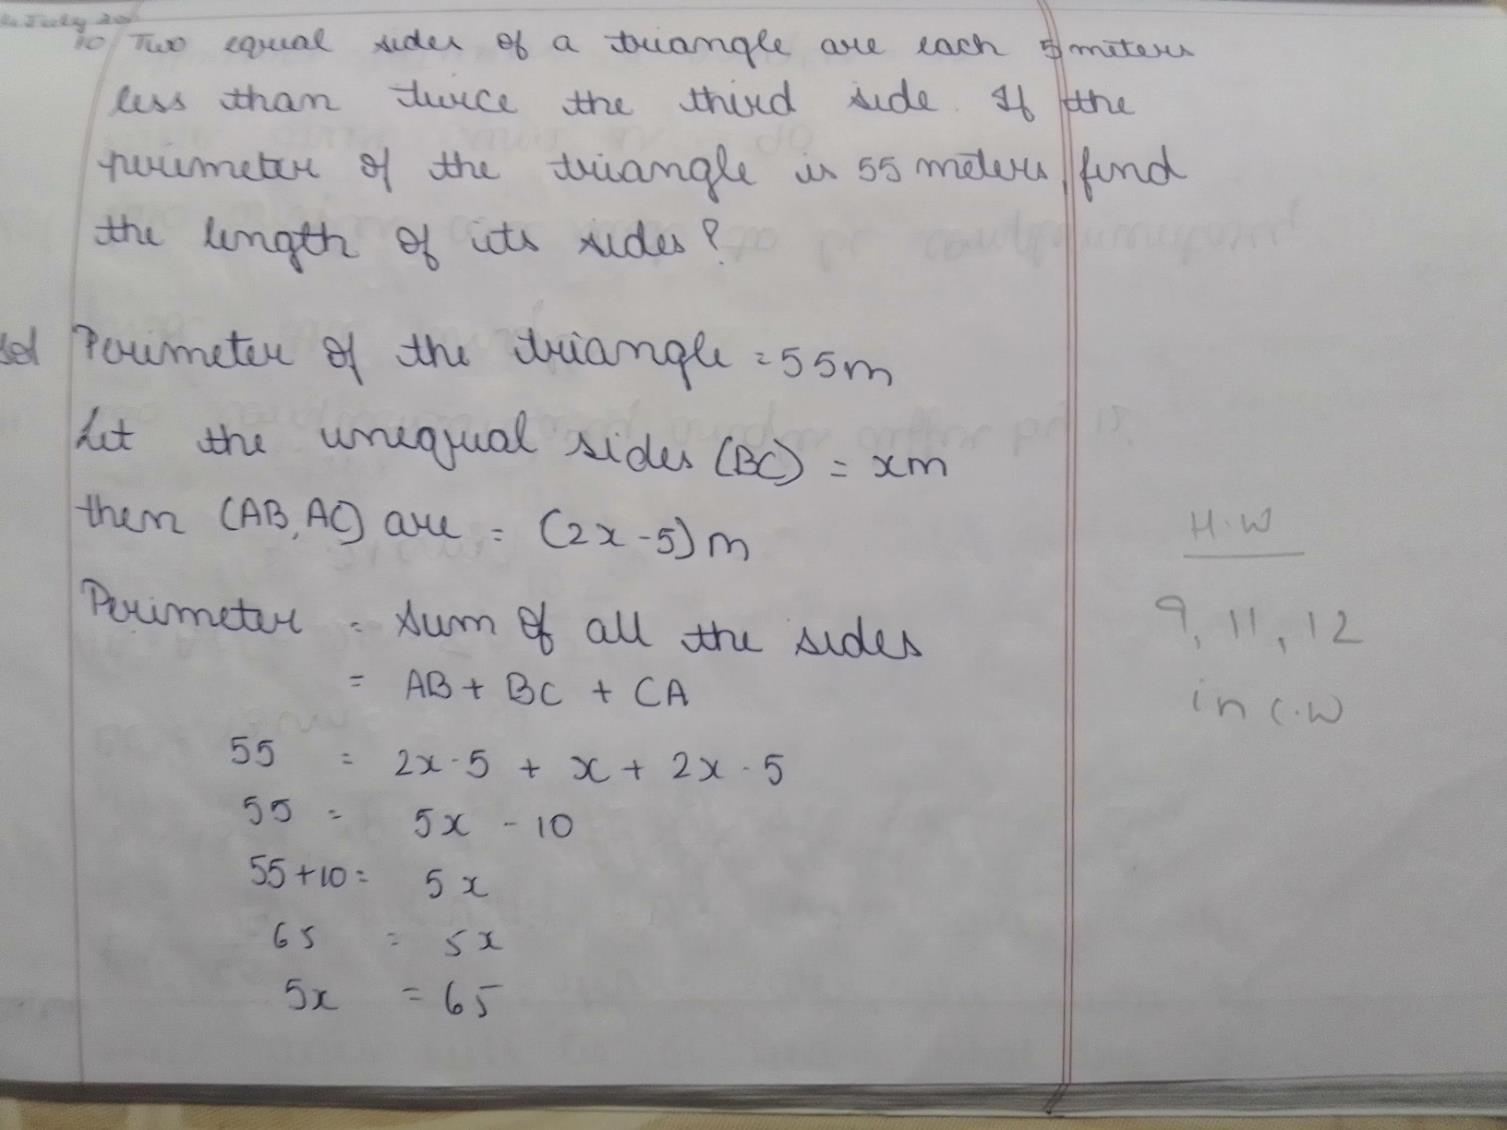 July 20
10 Two equal sides of a triangle are each 5 meters
less than twice the third side. If the
perimeter of the triangle is 55 meters, find
the length of its sides?
Sol Perimeter of the triangle = 55m
Let the unequal sides (BC) = xm
then (AB, AC) are = (2x-5)m
Perimeter = Sum of all the sides
= AB + BC + CA
55 = 2x-5 + x + 2x-5
55 = 5x - 10
55+10 = 5x
65 = 5x
5x = 65
H.W
9, 11, 12
in C.W